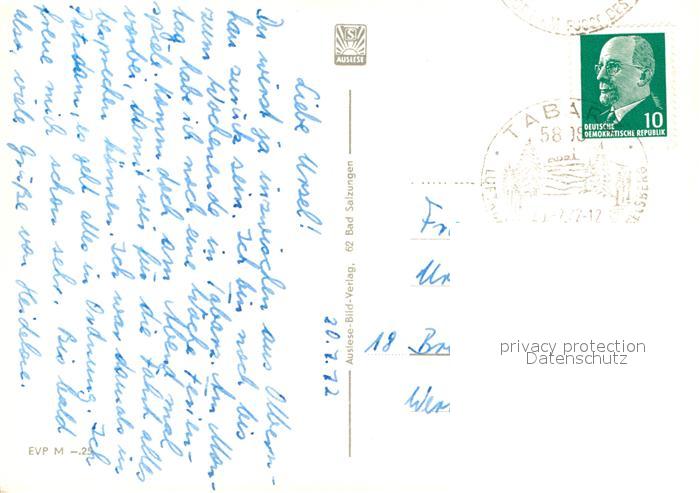 20.7.72
Liebe Ursel!
Du wirst ja inzwischen aus Olbern-
hau zurück sein. Ich bin noch bis
zum Wochenende in Tabarz. Am Mon-
tag habe ich noch eine Woche Ferien-
spiele. Komm doch am Abend mal
vorbei, damit wir für die Fahrt alles
besprechen können. Ich war damals in
Potsdam, es geht alles in Ordnung. Ich
freue mich schon sehr. Bis bald
also, viele Grüße von Heidelore.
EVP M –.25
AUSLESE
Auslese-Bild-Verlag, 62 Bad Salzungen
DEUTSCHE
DEMOKRATISCHE REPUBLIK
10
TABAR
58 08
18 Br
privacy protection
Datenschutz